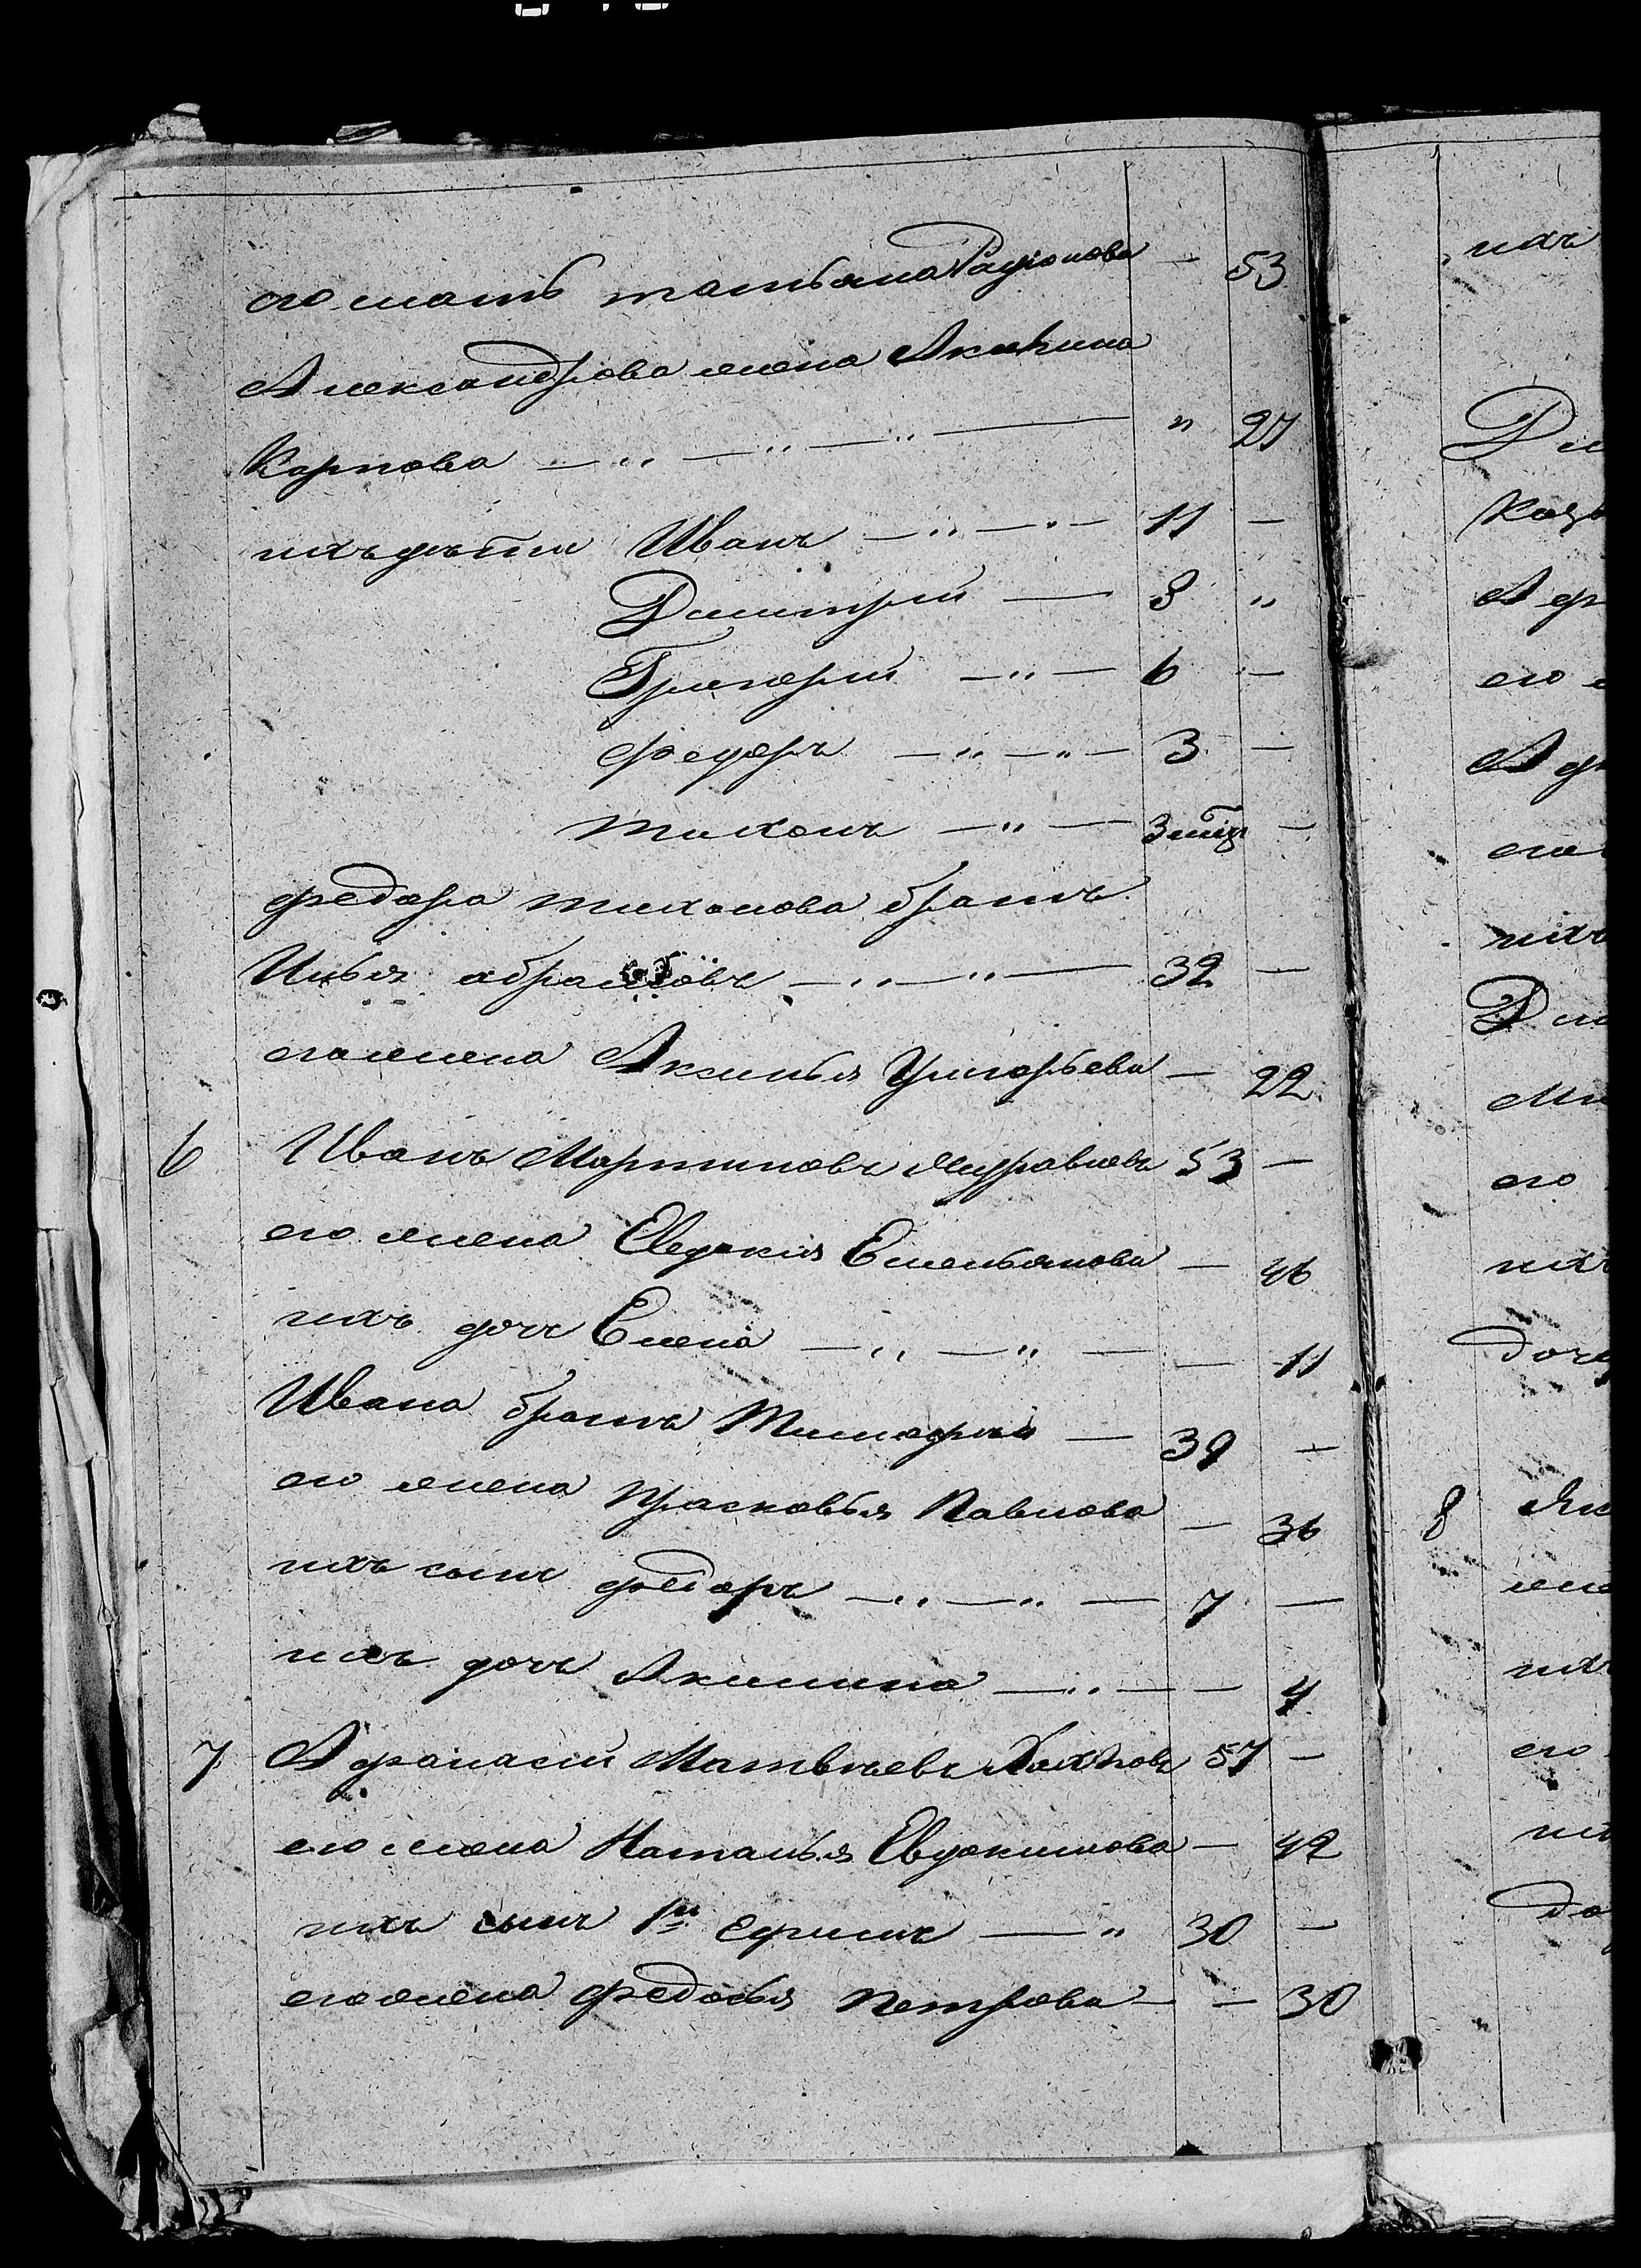 его мать татьяна Радионова — 53
Александрова жена Акилина
Карпова — " — " — " — " 27
ихъ дѣти Иванъ — " — " — 11 —
Дмитрий — 8 "
Григорий — " — 6 —
федоръ — " — " — 3 —
тихонъ — " — 3 —
федора тихонова братъ
Илья абрамовъ — " — " — 32 —
его жена Аксинья Григорьева — 22
6 Иванъ Мартиновъ Журавлевъ 53 —
его жена Евдокия Емельянова — 46
ихъ дочь Елена — " — " — — 11
Ивана братъ Тимофей — 39 —
его жена Прасковья Павлова — 36
ихъ сынъ федоръ — " — " — 7 —
ихъ дочь Акилина — " — — 4
7 Афанасий Матвѣевъ 57 —
его жена Наталья Евдокимова — 42
ихъ сынъ 1й Ефимъ — " 30 —
его жена федосья Петрова — — 30
ихъ
его
его
ихъ
8
его